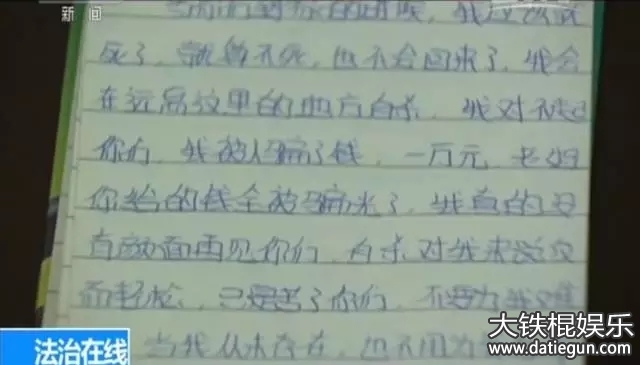 新闻
当你们看到这 的时候，我应该
死了，就算不死，也不会回来了，我会
在远离这里的地方自杀，我对不起
你们，我被人骗了钱，一万元，老妈
你给的钱全被骗光了，我真的没
有颜面再见你们，自杀对我来说反
而轻松，只是苦了你们，不要为我
当我从未存在，也不用为
法治在线
大铁棍娱乐
www.datiegun.com